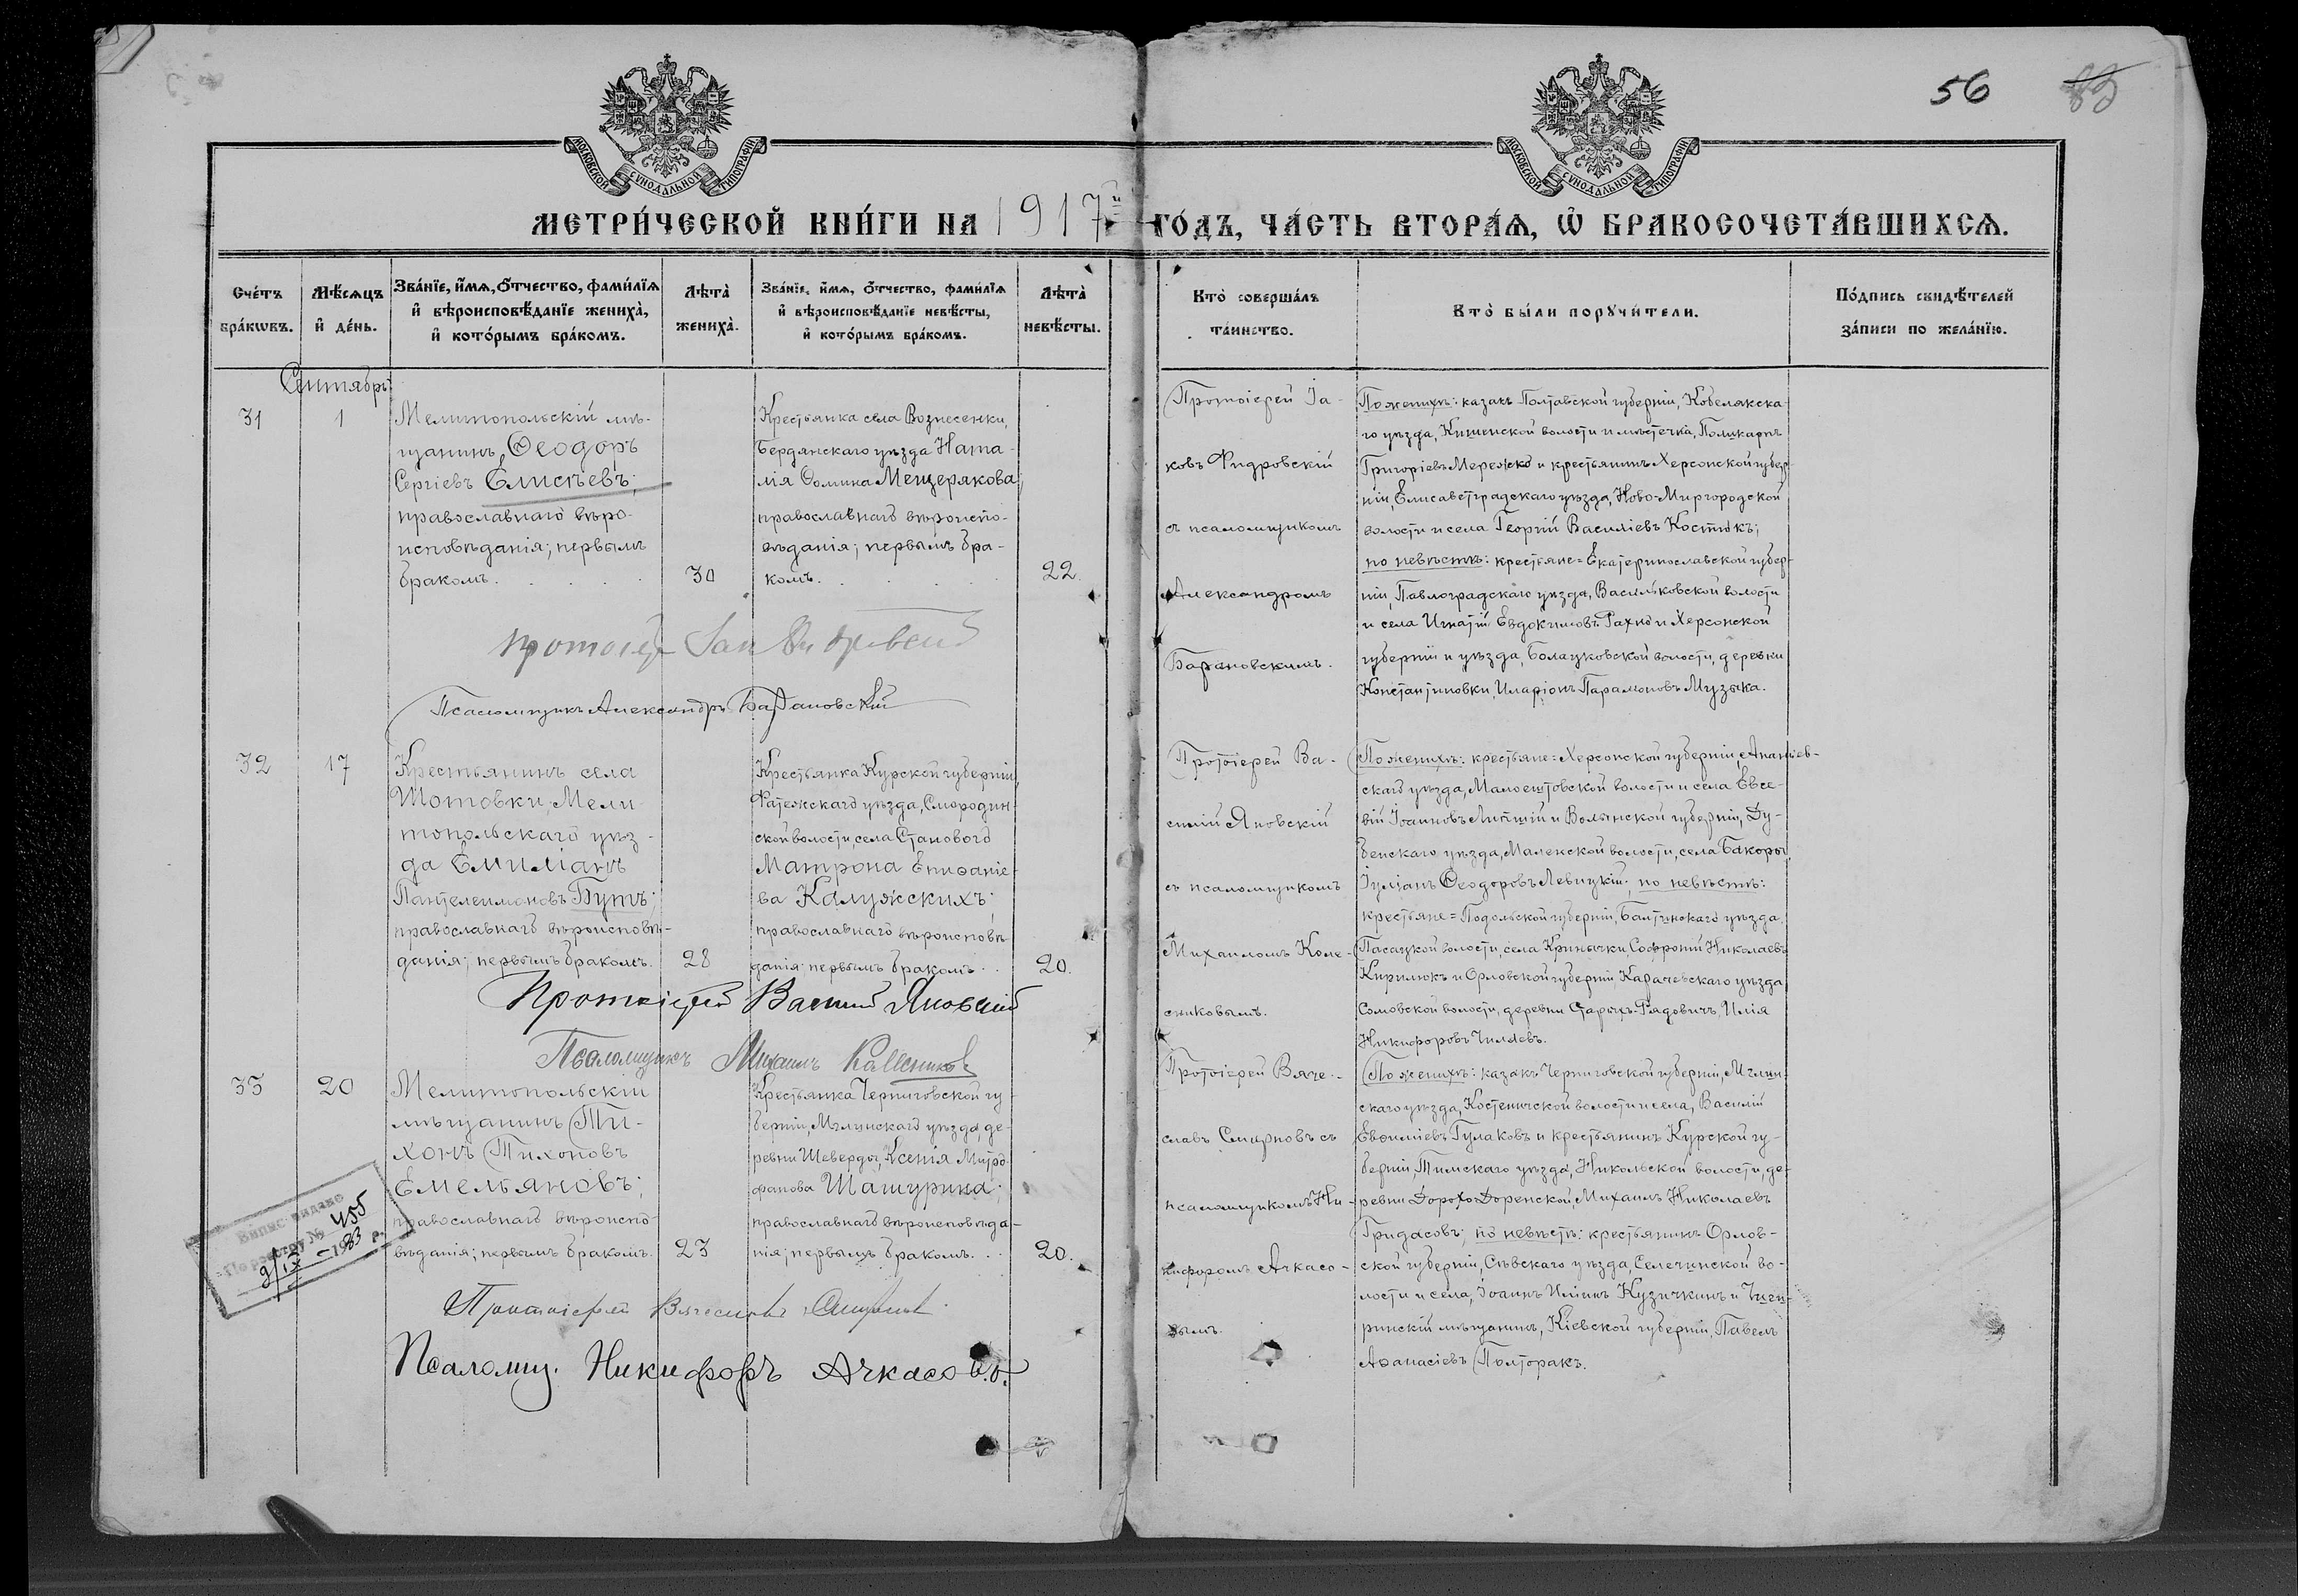 56
МОСКОВСКОЙ СѴНОДАЛЬНОЙ ТИПОГРАФІИ
МОСКОВСКОЙ СѴНОДАЛЬНОЙ ТИПОГРАФІИ
МЕТРИ́ЧЕСКОЙ КНИ́ГИ НА 1917й ГО́ДЪ, ЧА́СТЬ ВТОРА́Ѧ, Ѽ БРАКОСОЧЕТА́ВШИХСѦ.
Сче́тъ бра́кѡвъ.
Мѣ́сѧцъ и҆ де́нь.
Зва́нїе, и҆́мѧ, ѻ҆́тчество, фами́лїѧ и҆ вѣроисповѣ́данїе жениха̀, и҆ кото́рымъ бра́комъ.
Лѣта̀ жениха̀.
Зва́нїе, и҆́мѧ, ѻ҆́тчество, фами́лїѧ и҆ вѣроисповѣ́данїе невѣ́сты, и҆ кото́рымъ бра́комъ.
Лѣта̀ невѣ́сты.
Кто̀ соверша́лъ та́инство.
Кто̀ бы́ли порꙋчи́тели.
По́дпись свидѣ́телей за́писи по жела́нїю.
Сентябрь
31
1
Мелитопольскій мѣ-
щанинъ, Ѳеодоръ
Сергіевъ Елисѣевъ;
православнаго вѣро-
исповѣданія; первымъ
бракомъ.
30
Крестьянка села Вознесенки,
Бердянскаго уѣзда Ната-
лія Ѳомина Мещерякова;
православнаго вѣроиспо-
вѣданія; первымъ бра-
комъ.
22.
Протоіерей Іа-
ковъ Фидровскій
съ псаломщикомъ
Александромъ
Барановскимъ.
По женихѣ: казакъ Полтавской губерніи, Кобелякска-
го уѣзда, Кишенской волости и мѣстечка, Поликарпъ
Григоріевъ Мережко и крестьянинъ Херсонской губер-
ніи, Елисаветградскаго уѣзда, Ново-Миргородской
волости и села Георгій Василіевъ Костюкъ;
по невѣстѣ: крестьяне = Екатеринославской губер-
ніи, Павлоградскаго уѣзда, Васильковской волости
и села Игнатій Евдокимовъ Рахно и Херсонской
губерніи и уѣзда, Болацковской волости, деревни
Константиновки, Иларіонъ Парамоновъ Музыка.
Псаломщикъ Александръ Барановскій
32
17
Крестьянинъ села
Шотовки, Мели-
топольскаго уѣз-
да Емиліанъ
Пантелеимоновъ Бутъ;
православнаго вѣроисповѣ-
данія; первымъ бракомъ.
28
Крестьянка Курской губерніи,
Фатежскаго уѣзда, Смородин-
ской волости, села Становаго
Матрона Епифаніе-
ва Калужскихъ;
православнаго вѣроисповѣ-
данія; первымъ бракомъ.
20.
Протоіерей Ва-
силій Яновскій
съ псаломщикомъ
Михаиломъ Коле-
сниковымъ.
По женихѣ: крестьяне = Херсонской губерніи, Ананьев-
скаго уѣзда, волости и села Евсе-
вій Іоанновъ и Волынской губерніи, Ду-
бенскаго уѣзда, волости, села
Іуліанъ Ѳеодоровъ Левицкій; по невѣстѣ:
крестьяне = Подольской губерніи, Балтскаго уѣзда,
волости, села Кринички, Софроній Николаевъ
Кирилюкъ и Орловской губерніи, Карачевскаго уѣзда,
Сомовской волости, деревни Старыхъ-Рядовичъ, Илія
Никифоровъ Чилаевъ.
Протоіерей Василій Яновскій
Псаломщикъ Михаилъ Калесниковъ
33
20
Мелитопольскій
мѣщанинъ Ти-
хонъ Тихоновъ
Емельяновъ;
православнаго вѣроиспо-
вѣданія; первымъ бракомъ.
23
Крестьянка Черниговской гу-
берніи, Мглинскаго уѣзда, де-
ревни Шеверды, Ксенія Митро-
фанова Машурина;
православнаго вѣроисповѣда-
нія; первымъ бракомъ.
20.
Протоіерей Вяче-
славъ Смирновъ съ
псаломщикомъ Ни-
кифоромъ Ачкасо-
вымъ.
По женихѣ: казакъ Черниговской губерніи, Мглин-
скаго уѣзда, Костеничской волости и села, Василій
Евфиміевъ Гулаковъ и крестьянинъ Курской гу-
берніи, Тимскаго уѣзда, Никольской волости, де-
ревни Дорохо-Доренской, Михаилъ Николаевъ
Гридасовъ; по невѣстѣ: крестьянинъ Орлов-
ской губерніи, Сѣвскаго уѣзда, Селечинской во-
лости и села, Іоаннъ Иліинъ Кузичкинъ и Чиги-
ринскій мѣщанинъ, Кіевской губерніи, Павелъ
Аѳанасіевъ Полторакъ.
Випис видано
По реєстру № 455
2/IX – 1983 р.
Протоіерей Вячеславъ Смирновъ
Псаломщ. Никифоръ Ачкасовъ.